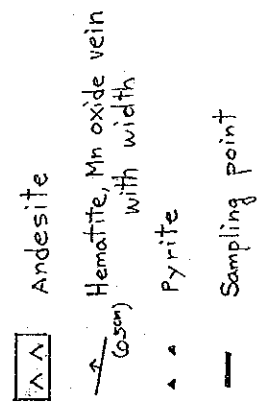 Andesite
Hematite, Mn oxide vein
with width
(0.5cm)
Pyrite
Sampling point